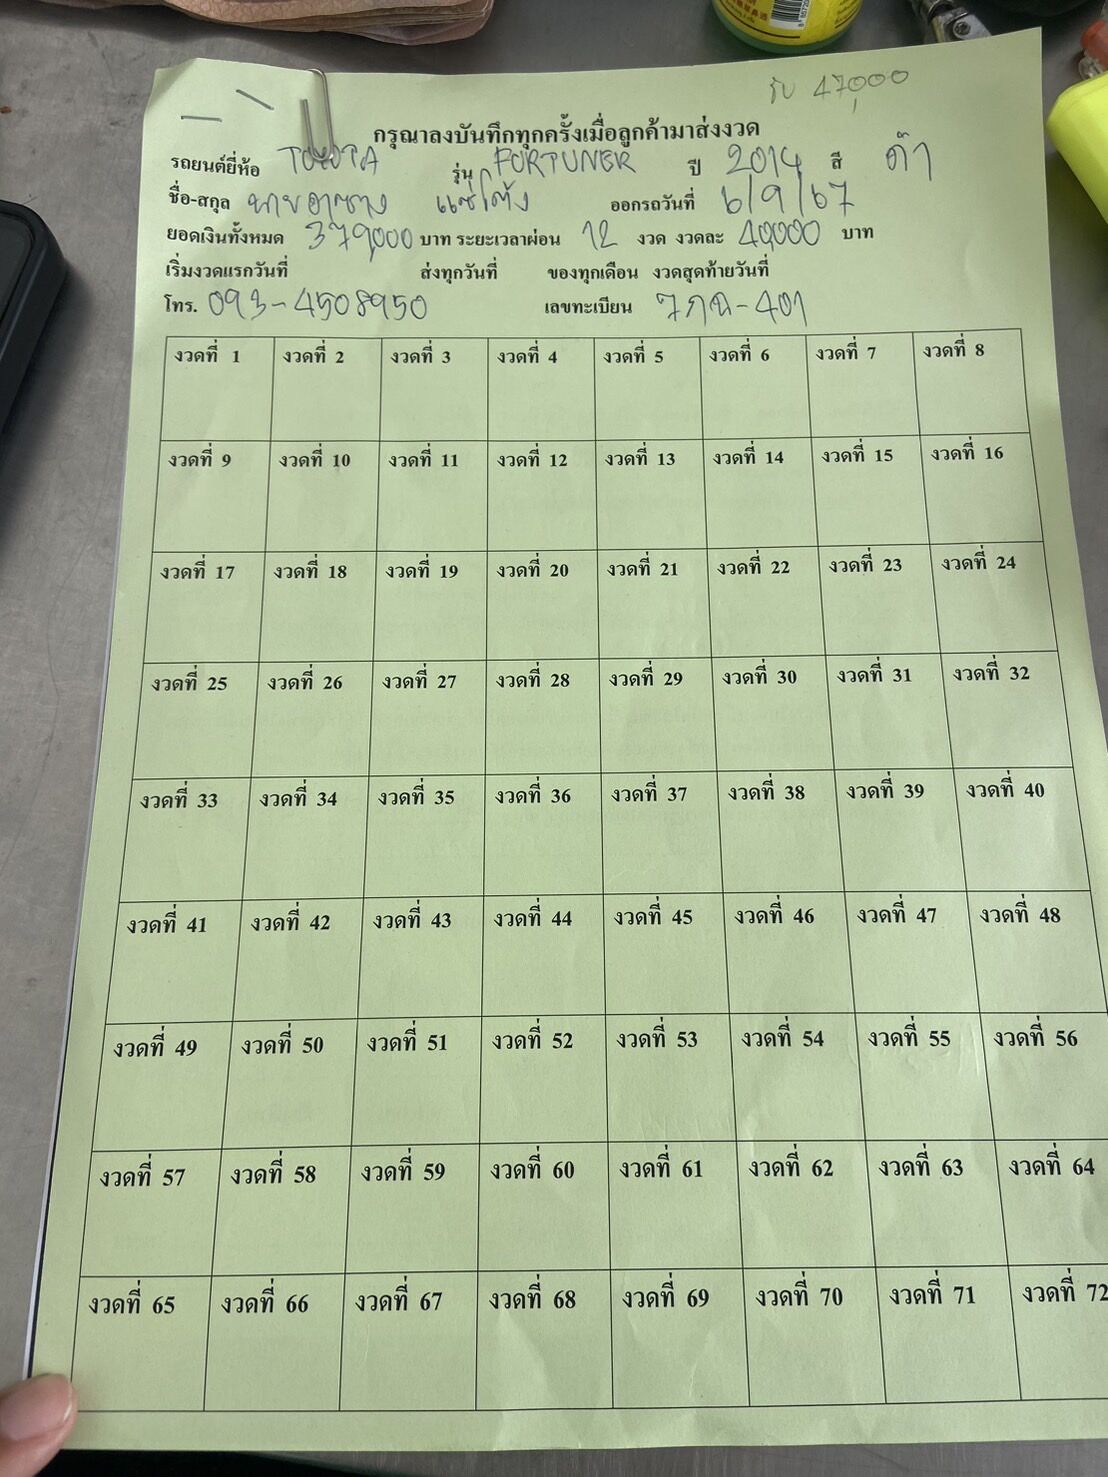 รับ 47,000
กรุณาลงบันทึกทุกครั้งเมื่อลูกค้ามาส่งงวด
รถยนต์ยี่ห้อ TOYOTA รุ่น FORTUNER ปี 2014 สี ดำ
ชื่อ-สกุล นายอาซาง แซ่โต้ง ออกรถวันที่ 6/9/67
ยอดเงินทั้งหมด 379,000 บาท ระยะเวลาผ่อน 12 งวด งวดละ 40,000 บาท
เริ่มงวดแรกวันที่ ส่งทุกวันที่ ของทุกเดือน งวดสุดท้ายวันที่
โทร. 093-4508950 เลขทะเบียน 7กฉ-401
งวดที่ 1 งวดที่ 2 งวดที่ 3 งวดที่ 4 งวดที่ 5 งวดที่ 6 งวดที่ 7 งวดที่ 8
งวดที่ 9 งวดที่ 10 งวดที่ 11 งวดที่ 12 งวดที่ 13 งวดที่ 14 งวดที่ 15 งวดที่ 16
งวดที่ 17 งวดที่ 18 งวดที่ 19 งวดที่ 20 งวดที่ 21 งวดที่ 22 งวดที่ 23 งวดที่ 24
งวดที่ 25 งวดที่ 26 งวดที่ 27 งวดที่ 28 งวดที่ 29 งวดที่ 30 งวดที่ 31 งวดที่ 32
งวดที่ 33 งวดที่ 34 งวดที่ 35 งวดที่ 36 งวดที่ 37 งวดที่ 38 งวดที่ 39 งวดที่ 40
งวดที่ 41 งวดที่ 42 งวดที่ 43 งวดที่ 44 งวดที่ 45 งวดที่ 46 งวดที่ 47 งวดที่ 48
งวดที่ 49 งวดที่ 50 งวดที่ 51 งวดที่ 52 งวดที่ 53 งวดที่ 54 งวดที่ 55 งวดที่ 56
งวดที่ 57 งวดที่ 58 งวดที่ 59 งวดที่ 60 งวดที่ 61 งวดที่ 62 งวดที่ 63 งวดที่ 64
งวดที่ 65 งวดที่ 66 งวดที่ 67 งวดที่ 68 งวดที่ 69 งวดที่ 70 งวดที่ 71 งวดที่ 72